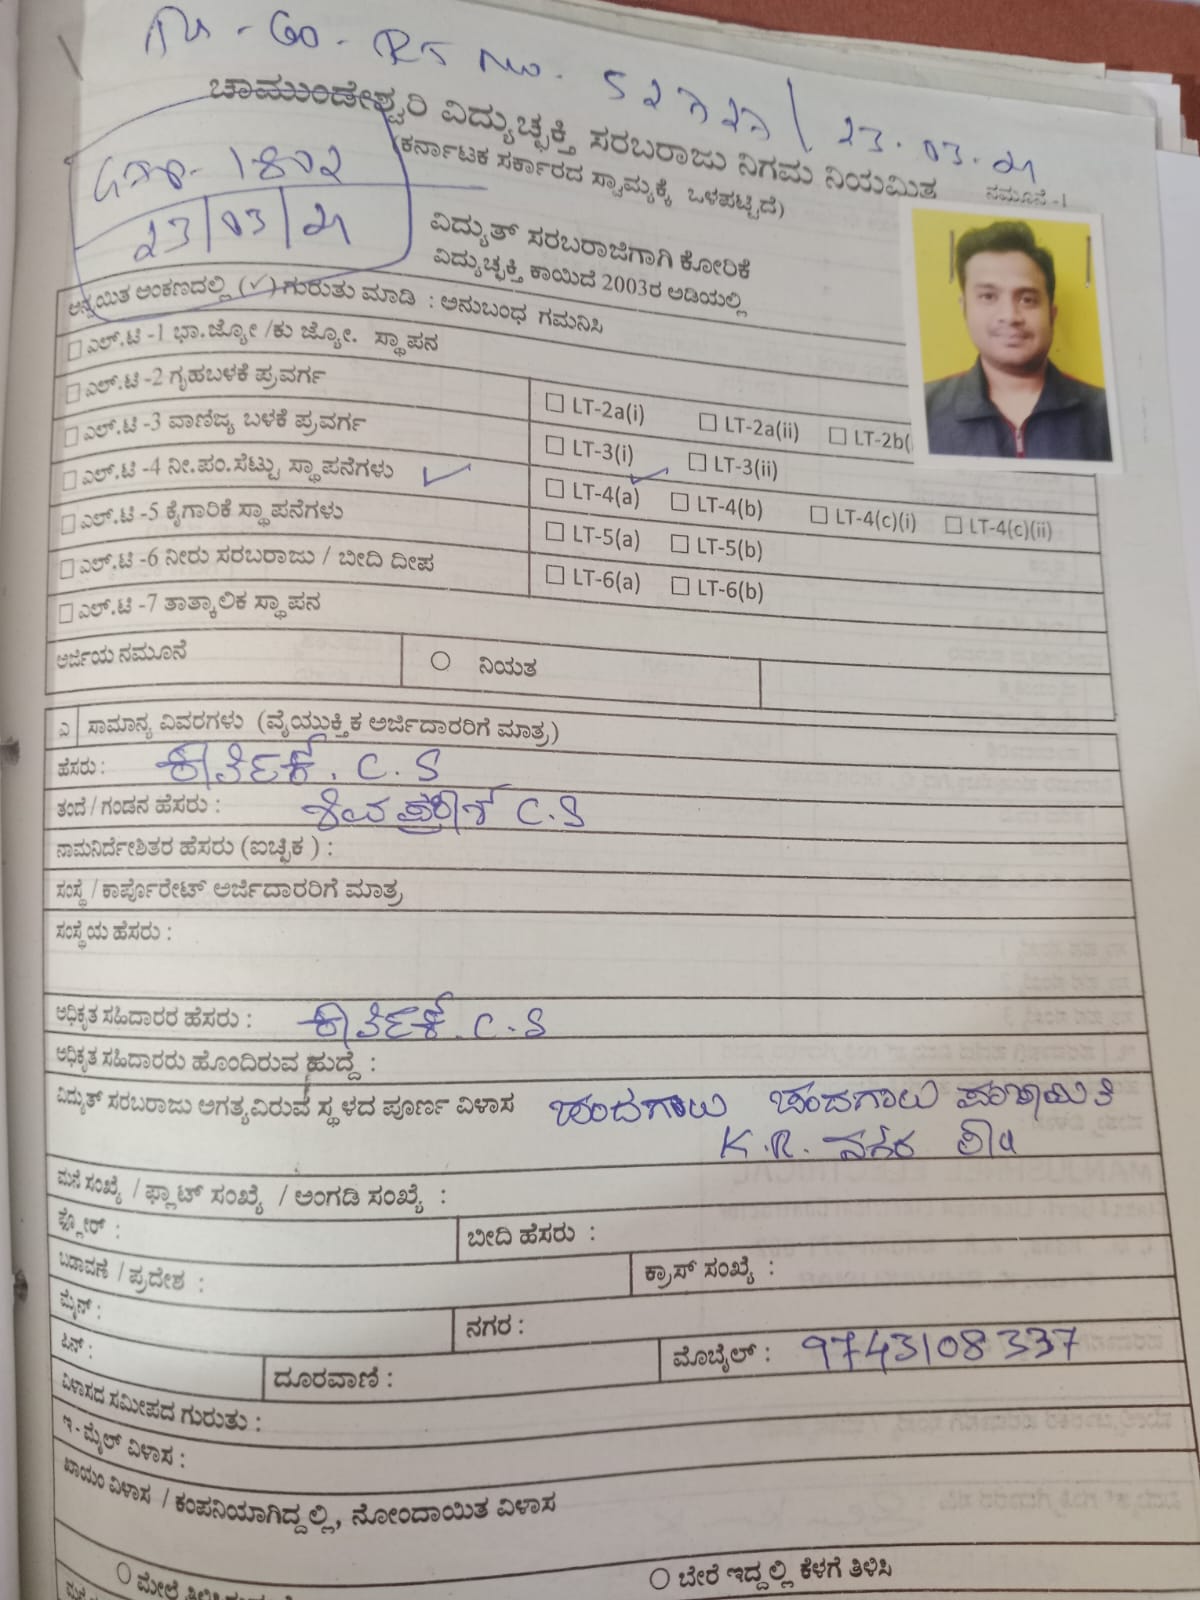 RT No. 52727 / 23.03.21
ಚಾಮುಂಡೇಶ್ವರಿ ವಿದ್ಯುಚ್ಛಕ್ತಿ ಸರಬರಾಜು ನಿಗಮ ನಿಯಮಿತ
(ಕರ್ನಾಟಕ ಸರ್ಕಾರದ ಸ್ವಾಮ್ಯಕ್ಕೆ ಒಳಪಟ್ಟಿದೆ)
ನಮೂನೆ -1
1802
23/03/21
ವಿದ್ಯುತ್ ಸರಬರಾಜಿಗಾಗಿ ಕೋರಿಕೆ
ವಿದ್ಯುಚ್ಛಕ್ತಿ ಕಾಯಿದೆ 2003ರ ಅಡಿಯಲ್ಲಿ
ಅನ್ವಯಿತ ಅಂಕಣದಲ್ಲಿ (✓) ಗುರುತು ಮಾಡಿ : ಅನುಬಂಧ ಗಮನಿಸಿ
☐ ಎಲ್.ಟಿ -1 ಭಾ.ಜ್ಯೋ /ಕು ಜ್ಯೋ. ಸ್ಥಾಪನ
☐ ಎಲ್.ಟಿ -2 ಗೃಹಬಳಕೆ ಪ್ರವರ್ಗ ☐ LT-2a(i) ☐ LT-2a(ii) ☐ LT-2b(
☐ ಎಲ್.ಟಿ -3 ವಾಣಿಜ್ಯ ಬಳಕೆ ಪ್ರವರ್ಗ ☐ LT-3(i) ☐ LT-3(ii)
☐ ಎಲ್.ಟಿ -4 ನೀ.ಪಂ.ಸೆಟ್ಟು ಸ್ಥಾಪನೆಗಳು ✓ ☐ LT-4(a) ✓ ☐ LT-4(b) ☐ LT-4(c)(i) ☐ LT-4(c)(ii)
☐ ಎಲ್.ಟಿ -5 ಕೈಗಾರಿಕೆ ಸ್ಥಾಪನೆಗಳು ☐ LT-5(a) ☐ LT-5(b)
☐ ಎಲ್.ಟಿ -6 ನೀರು ಸರಬರಾಜು / ಬೀದಿ ದೀಪ ☐ LT-6(a) ☐ LT-6(b)
☐ ಎಲ್.ಟಿ -7 ತಾತ್ಕಾಲಿಕ ಸ್ಥಾಪನ
ಅರ್ಜಿಯ ನಮೂನೆ ○ ನಿಯತ
ಎ ಸಾಮಾನ್ಯ ವಿವರಗಳು (ವೈಯುಕ್ತಿಕ ಅರ್ಜಿದಾರರಿಗೆ ಮಾತ್ರ)
ಹೆಸರು : ಕಾರ್ತಿಕ್. C. S
ತಂದೆ / ಗಂಡನ ಹೆಸರು : C.S
ನಾಮನಿರ್ದೇಶಿತರ ಹೆಸರು (ಐಚ್ಛಿಕ ) :
ಸಂಸ್ಥೆ / ಕಾರ್ಪೊರೇಟ್ ಅರ್ಜಿದಾರರಿಗೆ ಮಾತ್ರ
ಸಂಸ್ಥೆಯ ಹೆಸರು :
ಅಧಿಕೃತ ಸಹಿದಾರರ ಹೆಸರು : ಕಾರ್ತಿಕ್. C. S
ಅಧಿಕೃತ ಸಹಿದಾರರು ಹೊಂದಿರುವ ಹುದ್ದೆ :
ವಿದ್ಯುತ್ ಸರಬರಾಜು ಅಗತ್ಯವಿರುವ ಸ್ಥಳದ ಪೂರ್ಣ ವಿಳಾಸ ಚಂದಗಾಲು ಚಂದಗಾಲು ಪಂಚಾಯಿತಿ
K.R. ನಗರ ತಾ॥
ಮನೆ ಸಂಖ್ಯೆ / ಫ್ಲಾಟ್ ಸಂಖ್ಯೆ / ಅಂಗಡಿ ಸಂಖ್ಯೆ :
ಫ್ಲೋರ್ : ಬೀದಿ ಹೆಸರು :
ಬಡಾವಣೆ / ಪ್ರದೇಶ : ಕ್ರಾಸ್ ಸಂಖ್ಯೆ :
ಮೈನ್ : ನಗರ :
ಪಿನ್ : ದೂರವಾಣಿ : ಮೊಬೈಲ್ : 9743108337
ವಿಳಾಸದ ಸಮೀಪದ ಗುರುತು :
ಇ - ಮೈಲ್ ವಿಳಾಸ :
ಖಾಯಂ ವಿಳಾಸ / ಕಂಪನಿಯಾಗಿದ್ದಲ್ಲಿ, ನೋಂದಾಯಿತ ವಿಳಾಸ
○ ಮೇಲೆ ○ ಬೇರೆ ಇದ್ದಲ್ಲಿ ಕೆಳಗೆ ತಿಳಿಸಿ